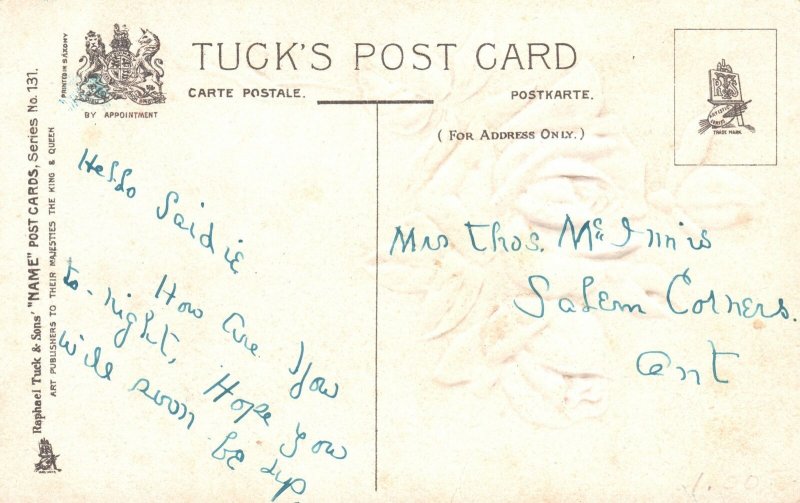 TUCK'S POST CARD
CARTE POSTALE.
POSTKARTE.
(FOR ADDRESS ONLY.)
PRINTED IN SAXONY
BY APPOINTMENT
Raphael Tuck & Sons' "NAME" POST CARDS, Series No. 131.
ART PUBLISHERS TO THEIR MAJESTIES THE KING & QUEEN
TRADE MARK
Hello Saidie
How Are You
to-night, Hope you
will soon be up
Mrs Thos. McInnis
Salem Corners.
Ont